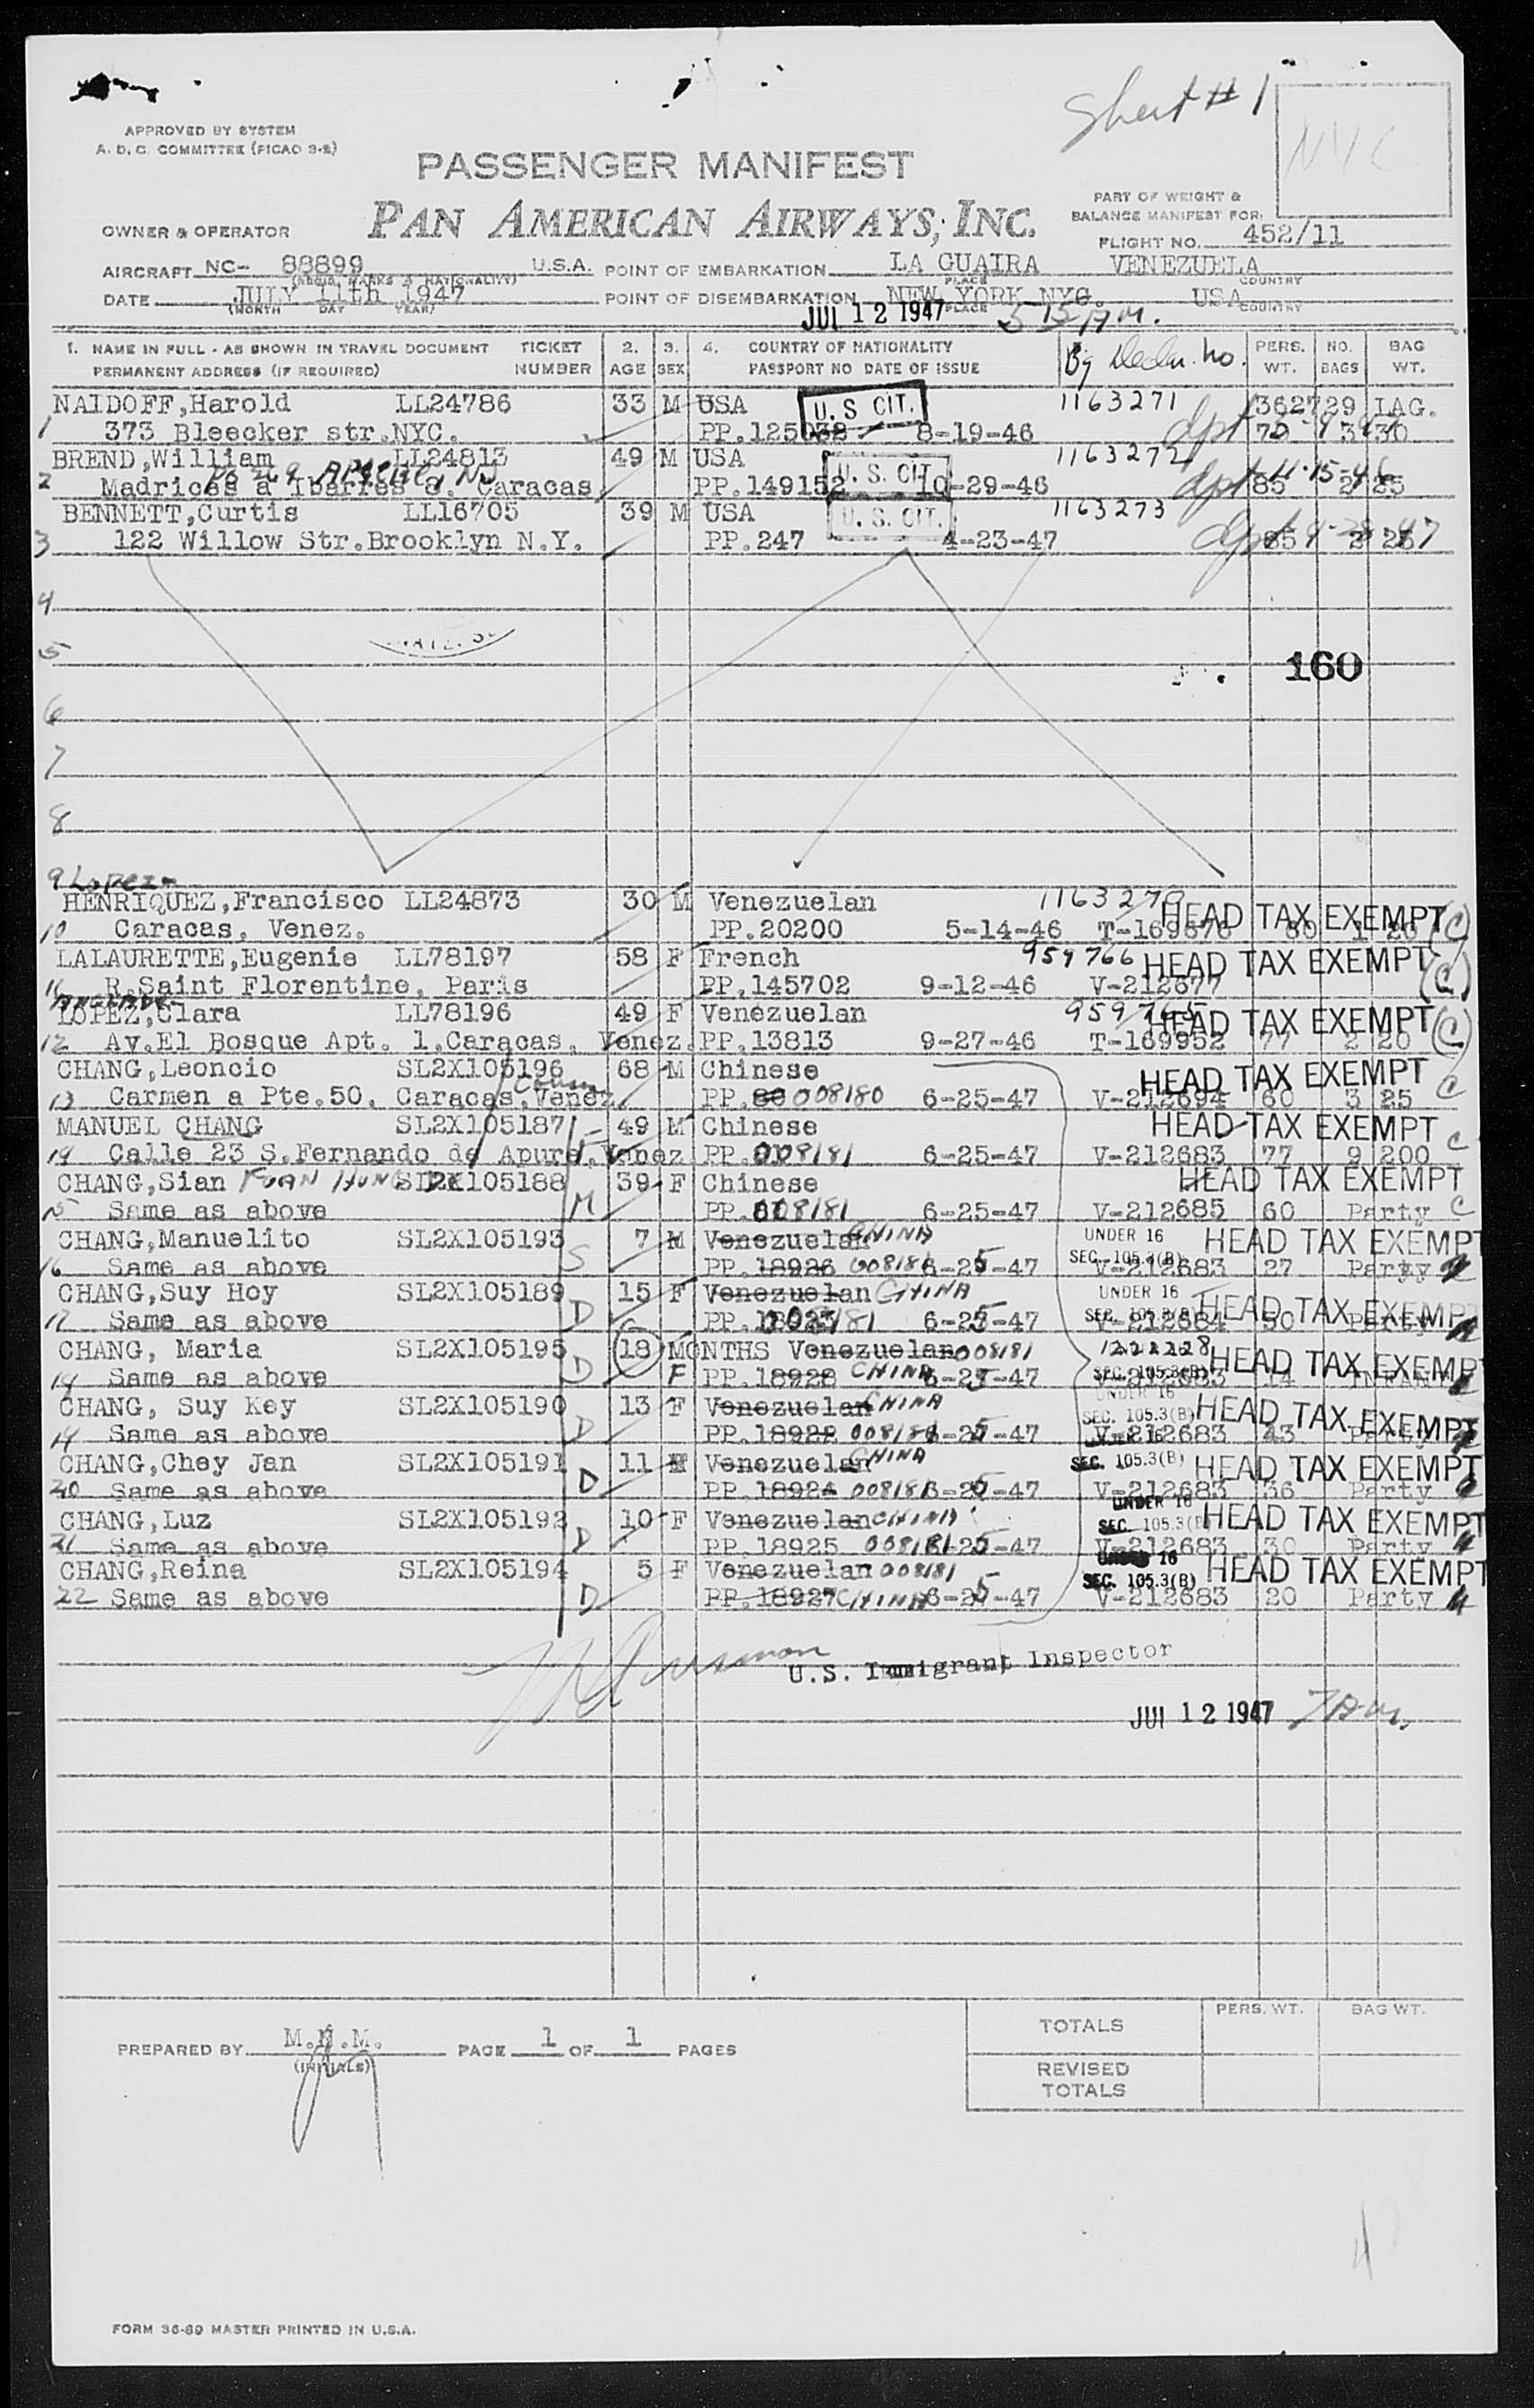 Sheet # 1
NYC
APPROVED BY SYSTEM
A. D. C. COMMITTEE (PICAO 3-2)
PASSENGER MANIFEST
PAN AMERICAN AIRWAYS, INC.
PART OF WEIGHT &
BALANCE MANIFEST FOR:
OWNER & OPERATOR
FLIGHT NO. 452/11
AIRCRAFT NC- 88899 U.S.A. POINT OF EMBARKATION LA GUAIRA VENEZUELA
PLACE COUNTRY
DATE JULY 11th 1947 POINT OF DISEMBARKATION NEW YORK NYC. USA
(MONTH DAY YEAR) PLACE COUNTRY
JUL 12 1947 5 15 AM.
1. NAME IN FULL - AS SHOWN IN TRAVEL DOCUMENT TICKET 2. 3. 4. COUNTRY OF NATIONALITY Bg Declr. No. PERS. NO. BAG
PERMANENT ADDRESS (IF REQUIRED) NUMBER AGE SEX PASSPORT NO DATE OF ISSUE WT. BAGS WT.
NAIDOFF,Harold LL24786 33 M USA U.S CIT. 1163271 362729 LAG.
1 373 Bleecker str.NYC. PP.125032 8-19-46 dpt
BREND,William LL24813 49 M USA U.S. CIT. 1163272
2 Madrices a Ibarres 8. Caracas PP.149152 10-29-46 dpt 11-15-46 85 2 25
BENNETT,Curtis LL16705 39 M USA U.S. CIT. 1163273
3 122 Willow Str.Brooklyn N.Y. PP.247 4-23-47 dpt 85 2
4
5
160
6
7
8
9 Lopez-
HENRIQUEZ,Francisco LL24873 30 M Venezuelan 1163270 HEAD TAX EXEMPT (C)
10 Caracas, Venez. PP.20200 5-14-46 T-169676 80 1 20
LALAURETTE,Eugenie LL78197 58 F French 959766 HEAD TAX EXEMPT (C)
11 R.Saint Florentine, Paris PP.145702 9-12-46 V-212677
LOPEZ,Clara LL78196 49 F Venezuelan HEAD TAX EXEMPT (C)
12 Av.El Bosque Apt. 1.Caracas, Venez. PP.13813 9-27-46 T-169952 77 2 20
CHANG,Leoncio SL2X105196 68 M Chinese HEAD TAX EXEMPT C
13 Carmen a Pte.50. Caracas,Venez. PP.80 008180 6-25-47 V-212694 60 3 25
MANUEL CHANG SL2X105187 F 49 M Chinese HEAD TAX EXEMPT C
14 Calle 23 S.Fernando de Apure,Venez PP.008181 6-25-47 V-212683 77 9 200
CHANG,Sian KUAN HUNG SL2X105188 39 F Chinese HEAD TAX EXEMPT
15 Same as above M PP.008181 6-25-47 V-212685 60 Party C
CHANG,Manuelito SL2X105193 7 M Venezuelan CHINA UNDER 16 HEAD TAX EXEMPT
16 Same as above S PP.18926 008181 6-25-47 SEC. 105.3(B) V-212683 27 Party
CHANG,Suy Hoy SL2X105189 15 F Venezuelan CHINA UNDER 16 HEAD TAX EXEMPT
17 Same as above D 6-25-47 SEC. 105.3(B) V-212684 50 Party
CHANG, Maria SL2X105195 18 MONTHS Venezuelan 008181 HEAD TAX EXEMPT
Same as above D F PP.18928 CHINA 6-25-47 SEC. 105.3(B) V-212683 14 INFANT
CHANG, Suy Key SL2X105190 13 F Venezuelan CHINA UNDER 16 SEC. 105.3(B) HEAD TAX EXEMPT
19 Same as above D PP.18922 008181 6-25-47 V-212683 43 Party
CHANG,Chey Jan SL2X105191 11 F Venezuelan CHINA UNDER 16 SEC. 105.3(B) HEAD TAX EXEMPT
20 Same as above D PP.18924 008181 6-25-47 V-212683 36 Party
CHANG,Luz SL2X105192 10 F Venezuelan CHINA UNDER 16 SEC. 105.3(B) HEAD TAX EXEMPT
21 Same as above D PP.18925 008181 6-25-47 V-212683 30 Party
CHANG,Reina SL2X105194 5 F Venezuelan 008181 UNDER 16 SEC. 105.3(B) HEAD TAX EXEMPT
22 Same as above D PP.18927 CHINA 6-25-47 V-212683 20 Party
U.S. Immigrant Inspector
JUL 12 1947
PERS. WT. BAG WT.
TOTALS
PREPARED BY M.N.M. PAGE 1 OF 1 PAGES
(INITIALS)
REVISED
TOTALS
FORM 36-69 MASTER PRINTED IN U.S.A.